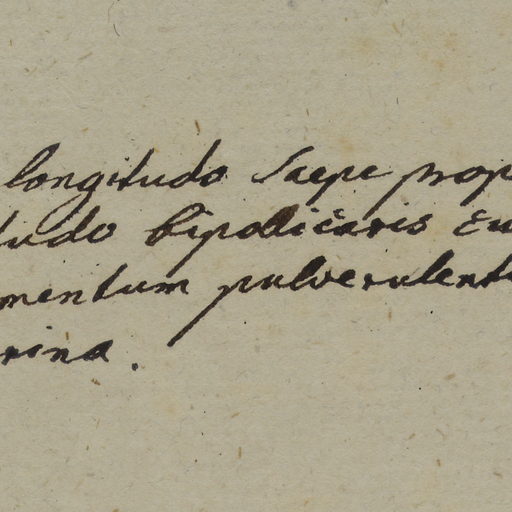 longitudo saepe prop
tudo bipollicaris Eu
mentum pulverulent
rina.